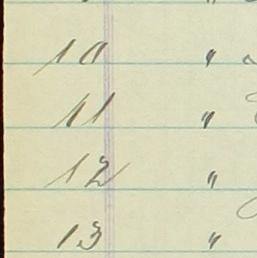 10 "
11 "
12 "
13 "